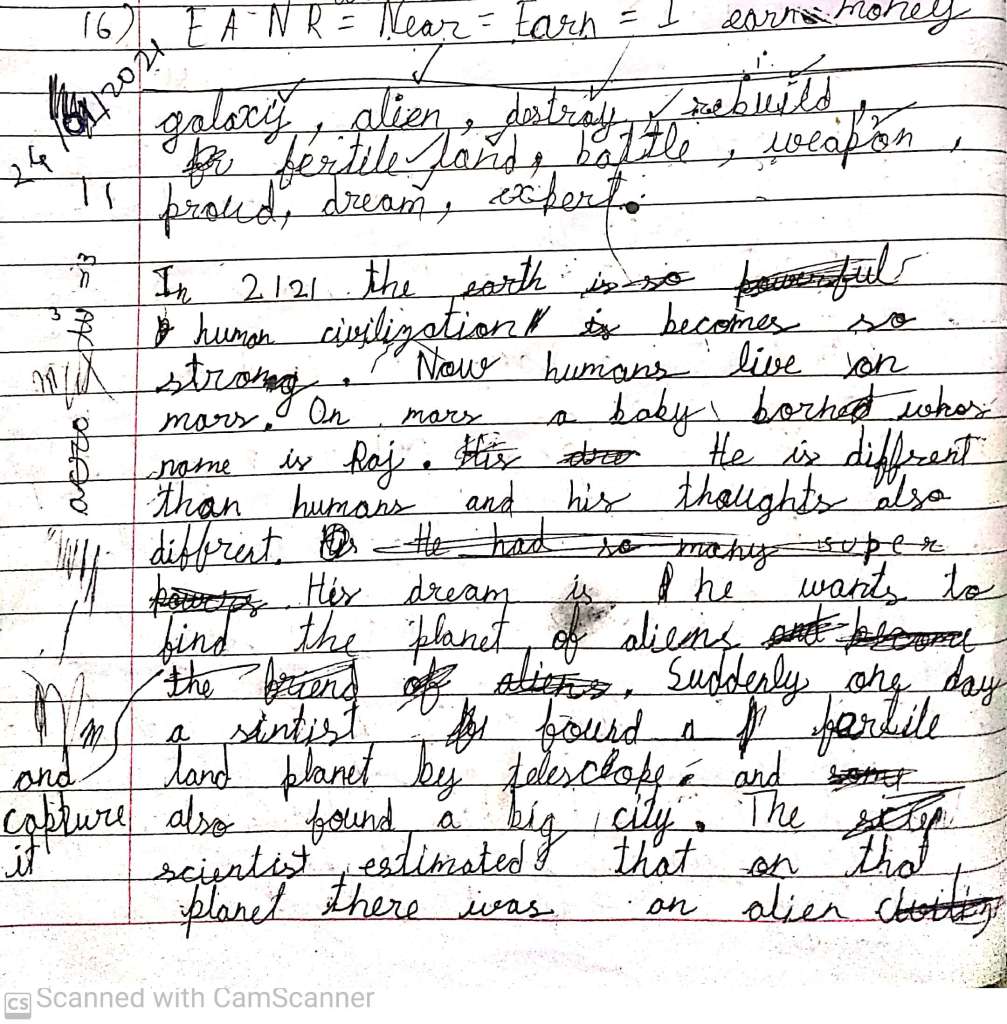 16) E A N R = Near = Earn = I earn money
24/01/2021
galaxy, alien, destroy, rebuild,
fertile land, battle, weapon,
11 proud, dream, expert.
In 2121 the earth is so powerful
human civilization is becomes so
strong. Now humans live on
mars. On mars a baby borned whos
name is Raj. His He is diffrent
than humans and his thoughts also
diffrent. He had so many super
powers. His dream is he wants to
find the planet of aliens and become
the friend of aliens. Suddenly one day
a sintist found a fertile
and land planet by telescope and some
capture also found a big city. The
it scientist estimated that on that
planet there was an alien
CS Scanned with CamScanner